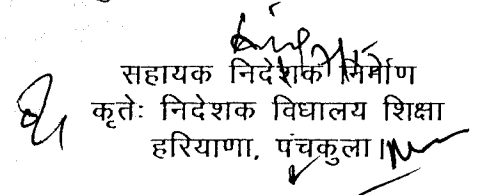 सहायक निदेशक निर्माण
कृतेः निदेशक विधालय शिक्षा
हरियाणा, पंचकुला।